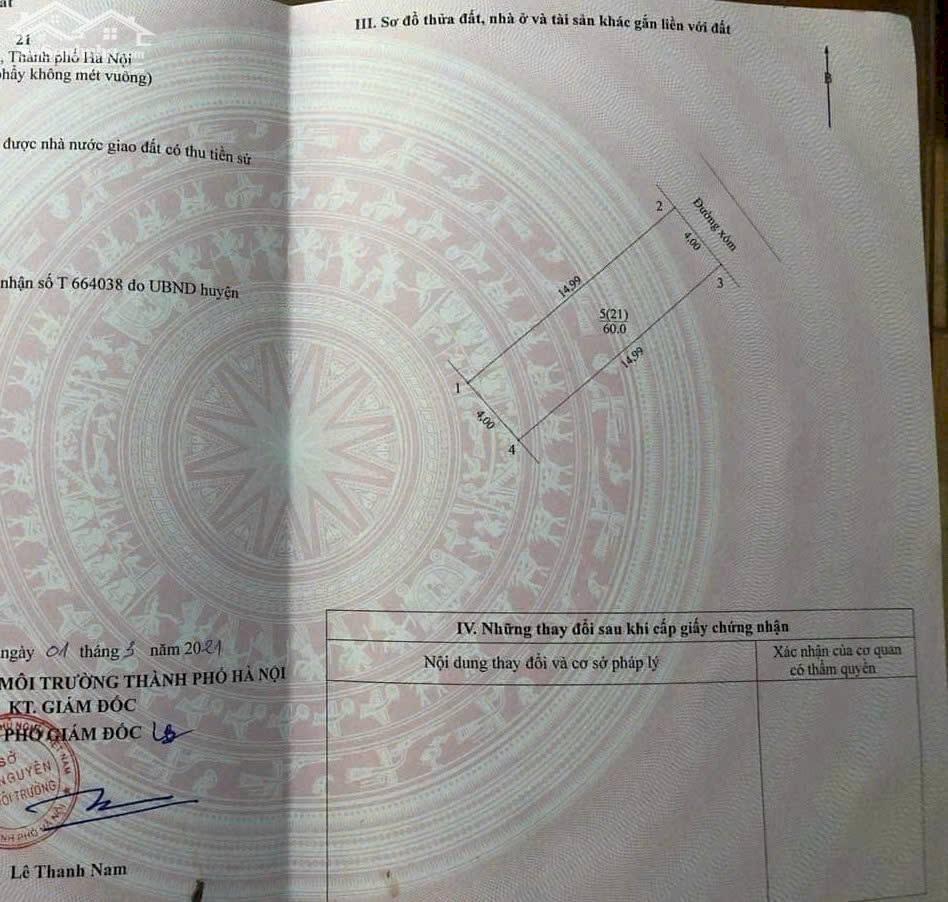 21
, Thành phố Hà Nội
phẩy không mét vuông)
được nhà nước giao đất có thu tiền sử
nhận số T 664038 do UBND huyện
ngày 01 tháng 3 năm 2021
MÔI TRƯỜNG THÀNH PHỐ HÀ NỘI
KT. GIÁM ĐỐC
PHÓ GIÁM ĐỐC
SỞ
NGUYÊN
MÔI TRƯỜNG
Lê Thanh Nam
III. Sơ đồ thửa đất, nhà ở và tài sản khác gắn liền với đất
B
Đường xóm
2
4,00
3
14,99
5(21)
60.0
14,99
1
4,00
4
IV. Những thay đổi sau khi cấp giấy chứng nhận
Nội dung thay đổi và cơ sở pháp lý
Xác nhận của cơ quan
có thẩm quyền